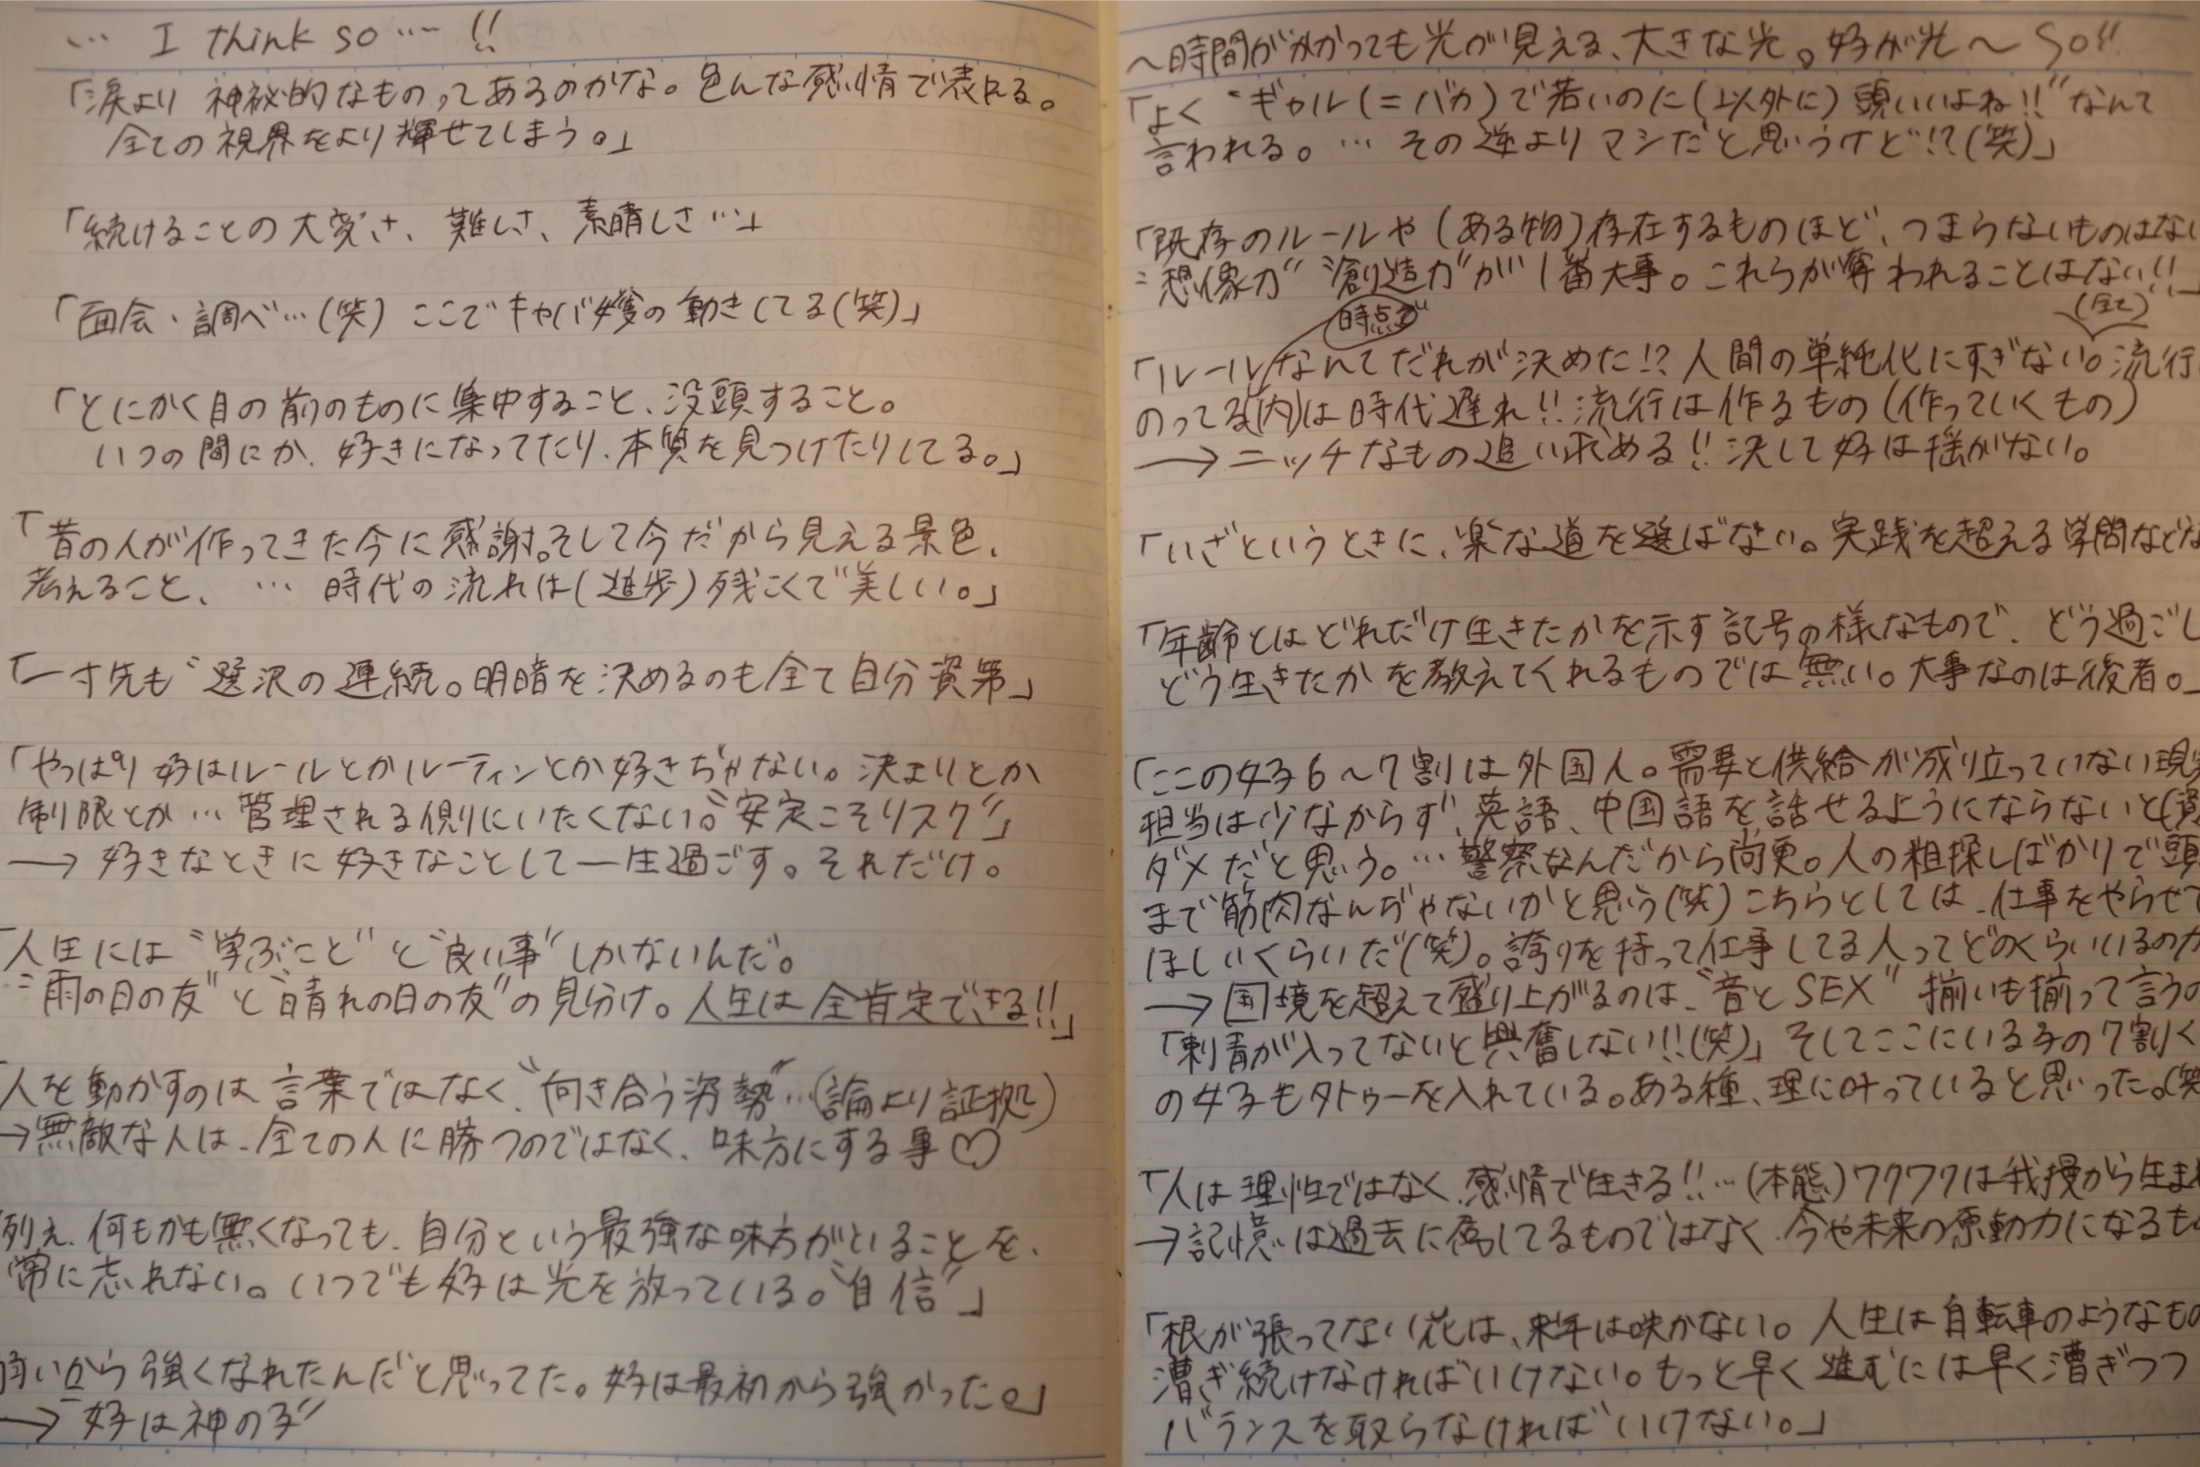 … I think so …!!
「涙より 神秘的なものってあるのかな。色んな感情で表れる。
全ての視界をより輝せてしまう。」
「続けることの大変さ、難しさ、素晴しさ…」
「面会・調べ…(笑) ここでキャバ嬢の動きしてる(笑)」
「とにかく目の前のものに集中すること、没頭すること。
いつの間にか、好きになってたり、本質を見つけたりしてる。」
「昔の人が作ってきた今に感謝。そして今だから見える景色、
考えること、… 時代の流れは(進歩)残こくで美しい。」
「一寸先も〝選沢の連続。明暗を決めるのも全て自分資第」
「やっぱり好はルールとかルーティンとか好きぢゃない。決まりとか
制限とか…管理される側にいたくない。〝安定こそリスク〟」
→ 好きなときに好きなことして一生過ごす。それだけ。
「人生には〝学ぶこと〟と〝良い事〟しかないんだ。
〝雨の日の友〟と〝晴れの日の友〟の見分け。人生は全肯定できる!!」
「人を動かすのは言葉ではなく、〝向き合う姿勢〟…(論より証拠)
→無敵な人は、全ての人に勝つのではなく、味方にする事♡
例え、何もかも無くなっても、自分という最強な味方がいることを、
常に忘れない。いつでも好は光を放っている。〝自信〟」
弱いから強くなれたんだと思ってた。好は最初から強かった。」
→〝好は神の子〟
～時間がかかっても光が見える、大きな光。好が光～ So!!
「よく〝ギャル(=バカ)で若いのに(以外に)頭いいよね!!〟なんて
言われる。… その逆よりマシだと思うけど!?(笑)」
「既存のルールや(ある物)存在するものほど、つまらないものはない
〝想像力〟〝創造力〟が1番大事。これらが奪われることはない!!」
時点で
(全て)
「ルールなんてだれが決めた!? 人間の単純化にすぎない。流行
のってる(内)は時代遅れ!! 流行は作るもの(作っていくもの)
→ ニッチなもの追い求める!! 決して好は揺がない。
「いざというときに、楽な道を選ばない。実践を超える学問などな
「年齢とはどれだけ生きたかを示す記号の様なもので、どう過ごし
どう生きたかを教えてくれるものでは無い。大事なのは後者。」
「ここの女子6～7割は外国人。需要と供給が成り立っていない現実
担当は少なからず、英語、中国語を話せるようにならないと(
ダメだと思う。…警察なんだから尚更。人の粗探しばかりで頭
まで筋肉なんぢゃないかと思う(笑) こちらとしては、仕事をやらせて
ほしいくらいだ(笑)。誇りを持って仕事してる人ってどのくらいいるのか
→ 国境を超えて盛り上がるのは、〝音とSEX〟 揃いも揃って言うの
「刺青が入ってないと興奮しない!!(笑)」そしてここにいる子の7割く
の女子もタトゥーを入れている。ある種、理に叶っていると思った。(笑
「人は理性ではなく、感情で生きる!!…(本態)ワクワクは我慢から生ま
→記憶は過去に属してるものではなく、今や未来の原動力になるもの
「根が張ってない花は、来年は咲かない。人生は自転車のようなもの
漕ぎ続けなければいけない。もっと早く進むには早く漕ぎつつ
バランスを取らなければいけない。」